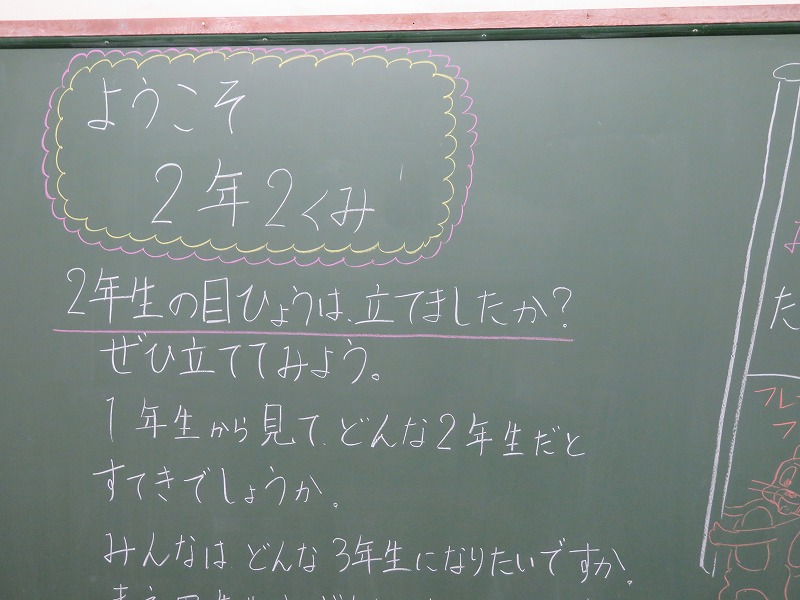 ようこそ
2年2くみ
2年生の目ひょうは、立てましたか?
ぜひ立ててみよう。
1年生から見て、どんな2年生だと
すてきでしょうか。
みんなは、どんな3年生になりたいですか。
た
フレ
フ